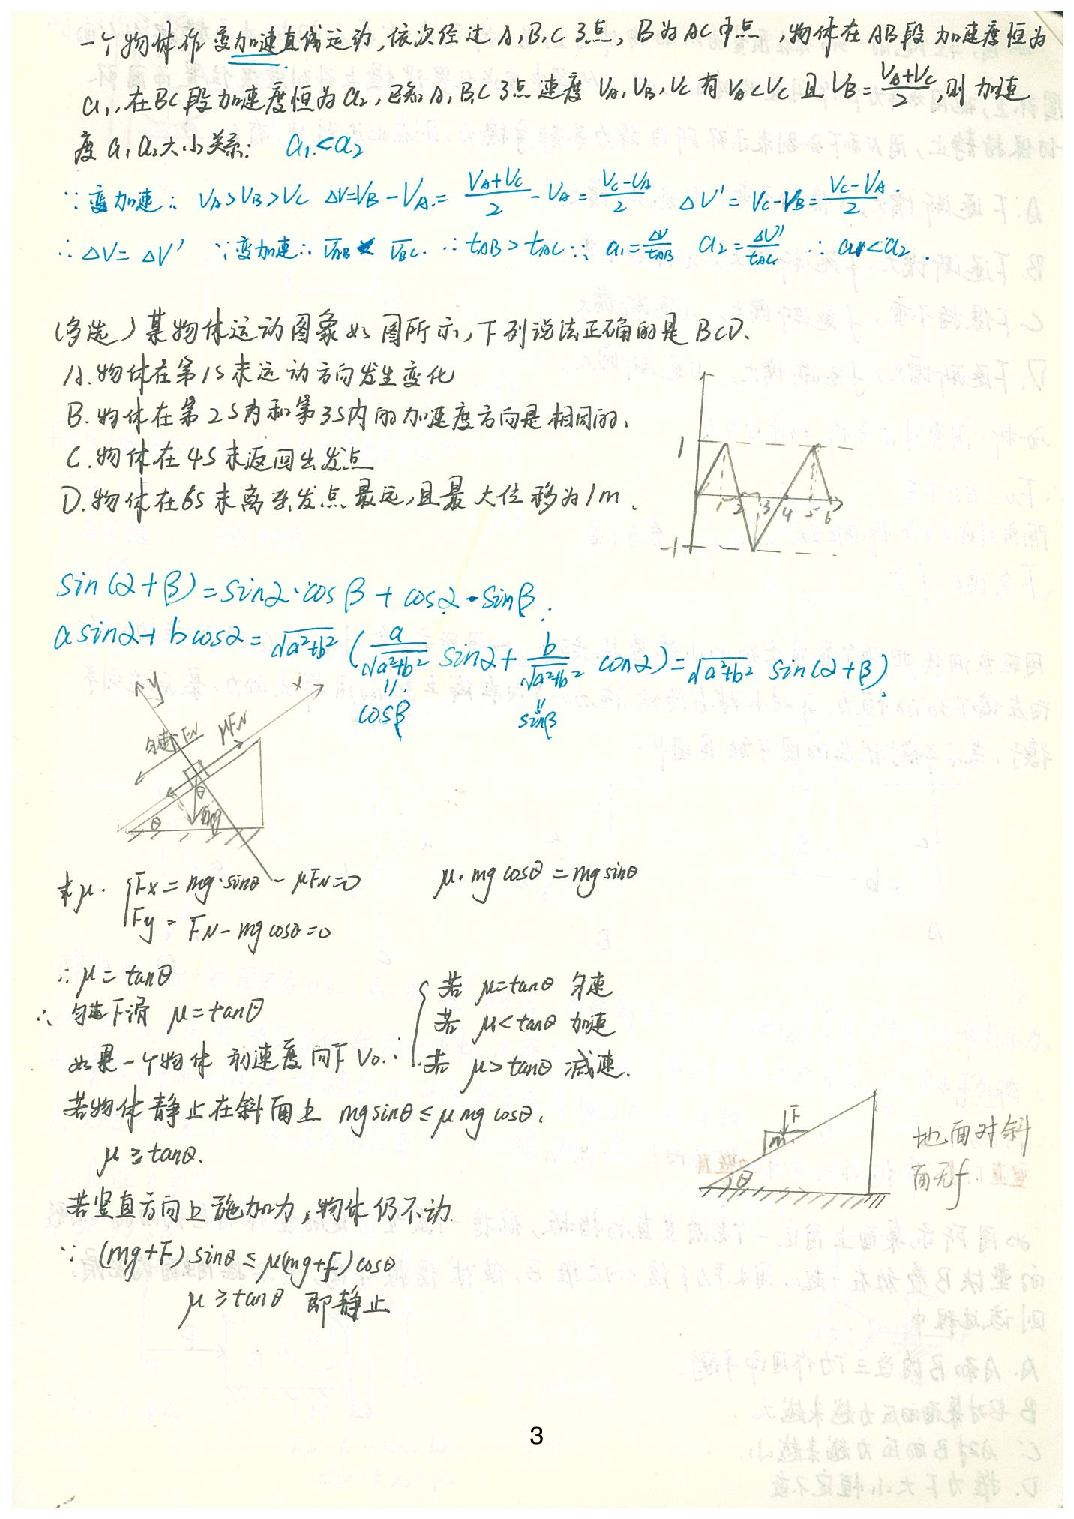 一个物体作变加速直线运动,该次经过A,B,C 3点,B为AC中点,物体在AB段加速度恒为
a₁,在BC段加速度恒为a₂,已知A,B,C 3点速度 VA,VB,VC 有VA<VC 且 VB=(VA+VC)/2,则加速
度a₁a₂大小关系: a₁<a₂
∵变加速∴ VA>VB>VC ΔV=VB-VA=(VA+VC)/2-VA=(VC-VA)/2 ΔV'=VC-VB=(VC-VA)/2.
∴ΔV=ΔV' ∵变加速∴ V̄AB < V̄BC ∴tAB>tAC∵ a₁=ΔV/tAB a₂=ΔV'/tAC ∴a₁<a₂.
(多选)某物体运动图象如图所示,下列说法正确的是BCD.
A.物体在第1S末运动方向发生变化
B.物体在第2S内和第3S内的加速度方向是相同的.
C.物体在4S末返回出发点
D.物体在6S末离出发点最远,且最大位移为1m.
1
1 2 3 4 5 6
-1
sin(α+β)=sinα·cosβ+cosα·sinβ.
asinα+bcosα=√a²+b² (a/√a²+b² sinα+b/√a²+b² cosα)=√a²+b² sin(α+β)
cosβ
sinβ
y
x
匀速 FN μFN
θ
θ
mg
求μ. {Fx=mg·sinθ-μFN=0 μ·mgcosθ=mgsinθ
Fy=FN-mgcosθ=0
∴μ=tanθ
∴ 匀速下滑 μ=tanθ
如果一个物体 初速度向下 V₀∴
{若 μ=tanθ 匀速
若 μ<tanθ 加速
若 μ>tanθ 减速.
若物体静止在斜面上 mgsinθ≤μmgcosθ.
μ≥tanθ.
若竖直方向上施加力,物体仍不动.
∵(mg+F)sinθ≤μ(mg+f)cosθ
μ≥tanθ 即静止
F
m
θ
地面对斜
面无f.
3